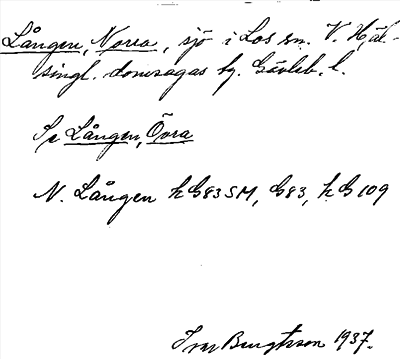 Lången, Norra, sjö i Los sn. V. Häl-
singl. domsagas tg. Gävleb. l.
Se Lången, Övra
N. Lången k G83SM, G83, k G109
Ivar Bengtsson 1937.